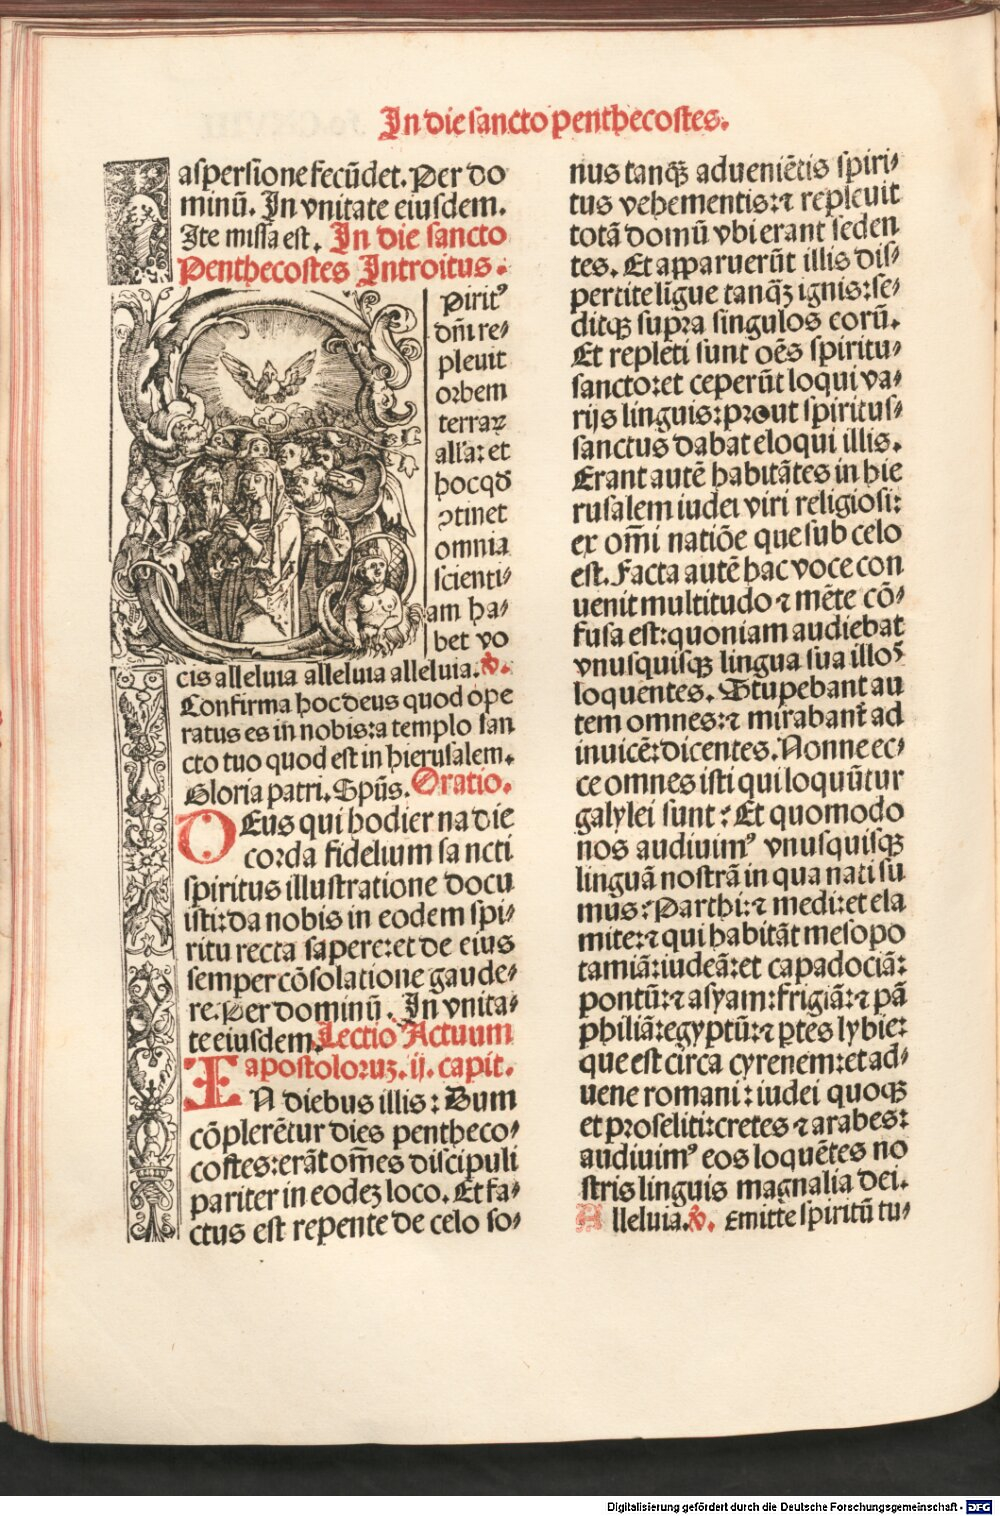 In die sancto penthecostes.
aspersione fecūdet. Per do
minū. In vnitate eiusdem.
Ite missa est. In die sancto
Penthecostes Introitus.
Spiritꝰ
dn̄i re⸗
pleuit
orbem
terraꝝ
alľa: et
hoc qđ
ↄtinet
omnia
scienti⸗
am ha⸗
bet vo
cis alleluia alleluia alleluia. ℣.
Confirma hoc deus quod ope
ratus es in nobis: a templo san
cto tuo quod est in hierusalem.
Gloria patri. Spūs. Oratio.
DEus qui hodierna die
corda fidelium sancti
spiritus illustratione docu
isti: da nobis in eodem spi⸗
ritu recta sapere: et de eius
semper cōsolatione gaude⸗
re. Per dominū. In vnita⸗
te eiusdem. Lectio Actuum
apostoloruꝫ. ij. capit.
IN diebus illis: Dum
cōplerētur dies pentheco⸗
costes: erāt om̄es discipuli
pariter in eodeꝫ loco. Et fa⸗
ctus est repente de celo so⸗
nus tanqꝫ̄ adueniētis spiri⸗
tus vehementis: ⁊ repleuit
totā domū vbi erant seden
tes. Et apparuerūt illis dis⸗
pertite ligue tanqꝫ̄ ignis: se⸗
ditqꝫ supra singulos eorū.
Et repleti sunt oēs spiritu⸗
sancto: et ceperūt loqui va⸗
rijs linguis: prout spiritus⸗
sanctus dabat eloqui illis.
Erant autē habitātes in hie
rusalem iudei viri religiosi:
ex om̄i natiōe que sub celo
est. Facta autē hac voce con
uenit multitudo ⁊ mēte cō⸗
fusa est: quoniam audiebat
vnusquisqꝫ lingua sua illoꝝ
loquentes. Stupebant au
tem omnes: ⁊ mirabant̄ ad
inuicē: dicentes. Nonne ec⸗
ce omnes isti qui loquūtur
galylei sunt? Et quomodo
nos audiuimꝰ vnusquisqꝫ
linguā nostrā in qua nati su
mus? Parthi: ⁊ medi: et ela
mite: ⁊ qui habitāt mesopo
tamiā: iudeā: et capadociā:
pontū: ⁊ asyam: frigiā: ⁊ pā
philiā: egyptū: ⁊ ꝑtes lybie:
que est circa cyrenem: et ad⸗
uene romani: iudei quoqꝫ
et proseliti: cretes ⁊ arabes:
audiuimꝰ eos loquētes no
stris linguis magnalia dei.
Alleluia. ℣. Emitte spiritū tu⸗
Digitalisierung gefördert durch die Deutsche Forschungsgemeinschaft - DFG